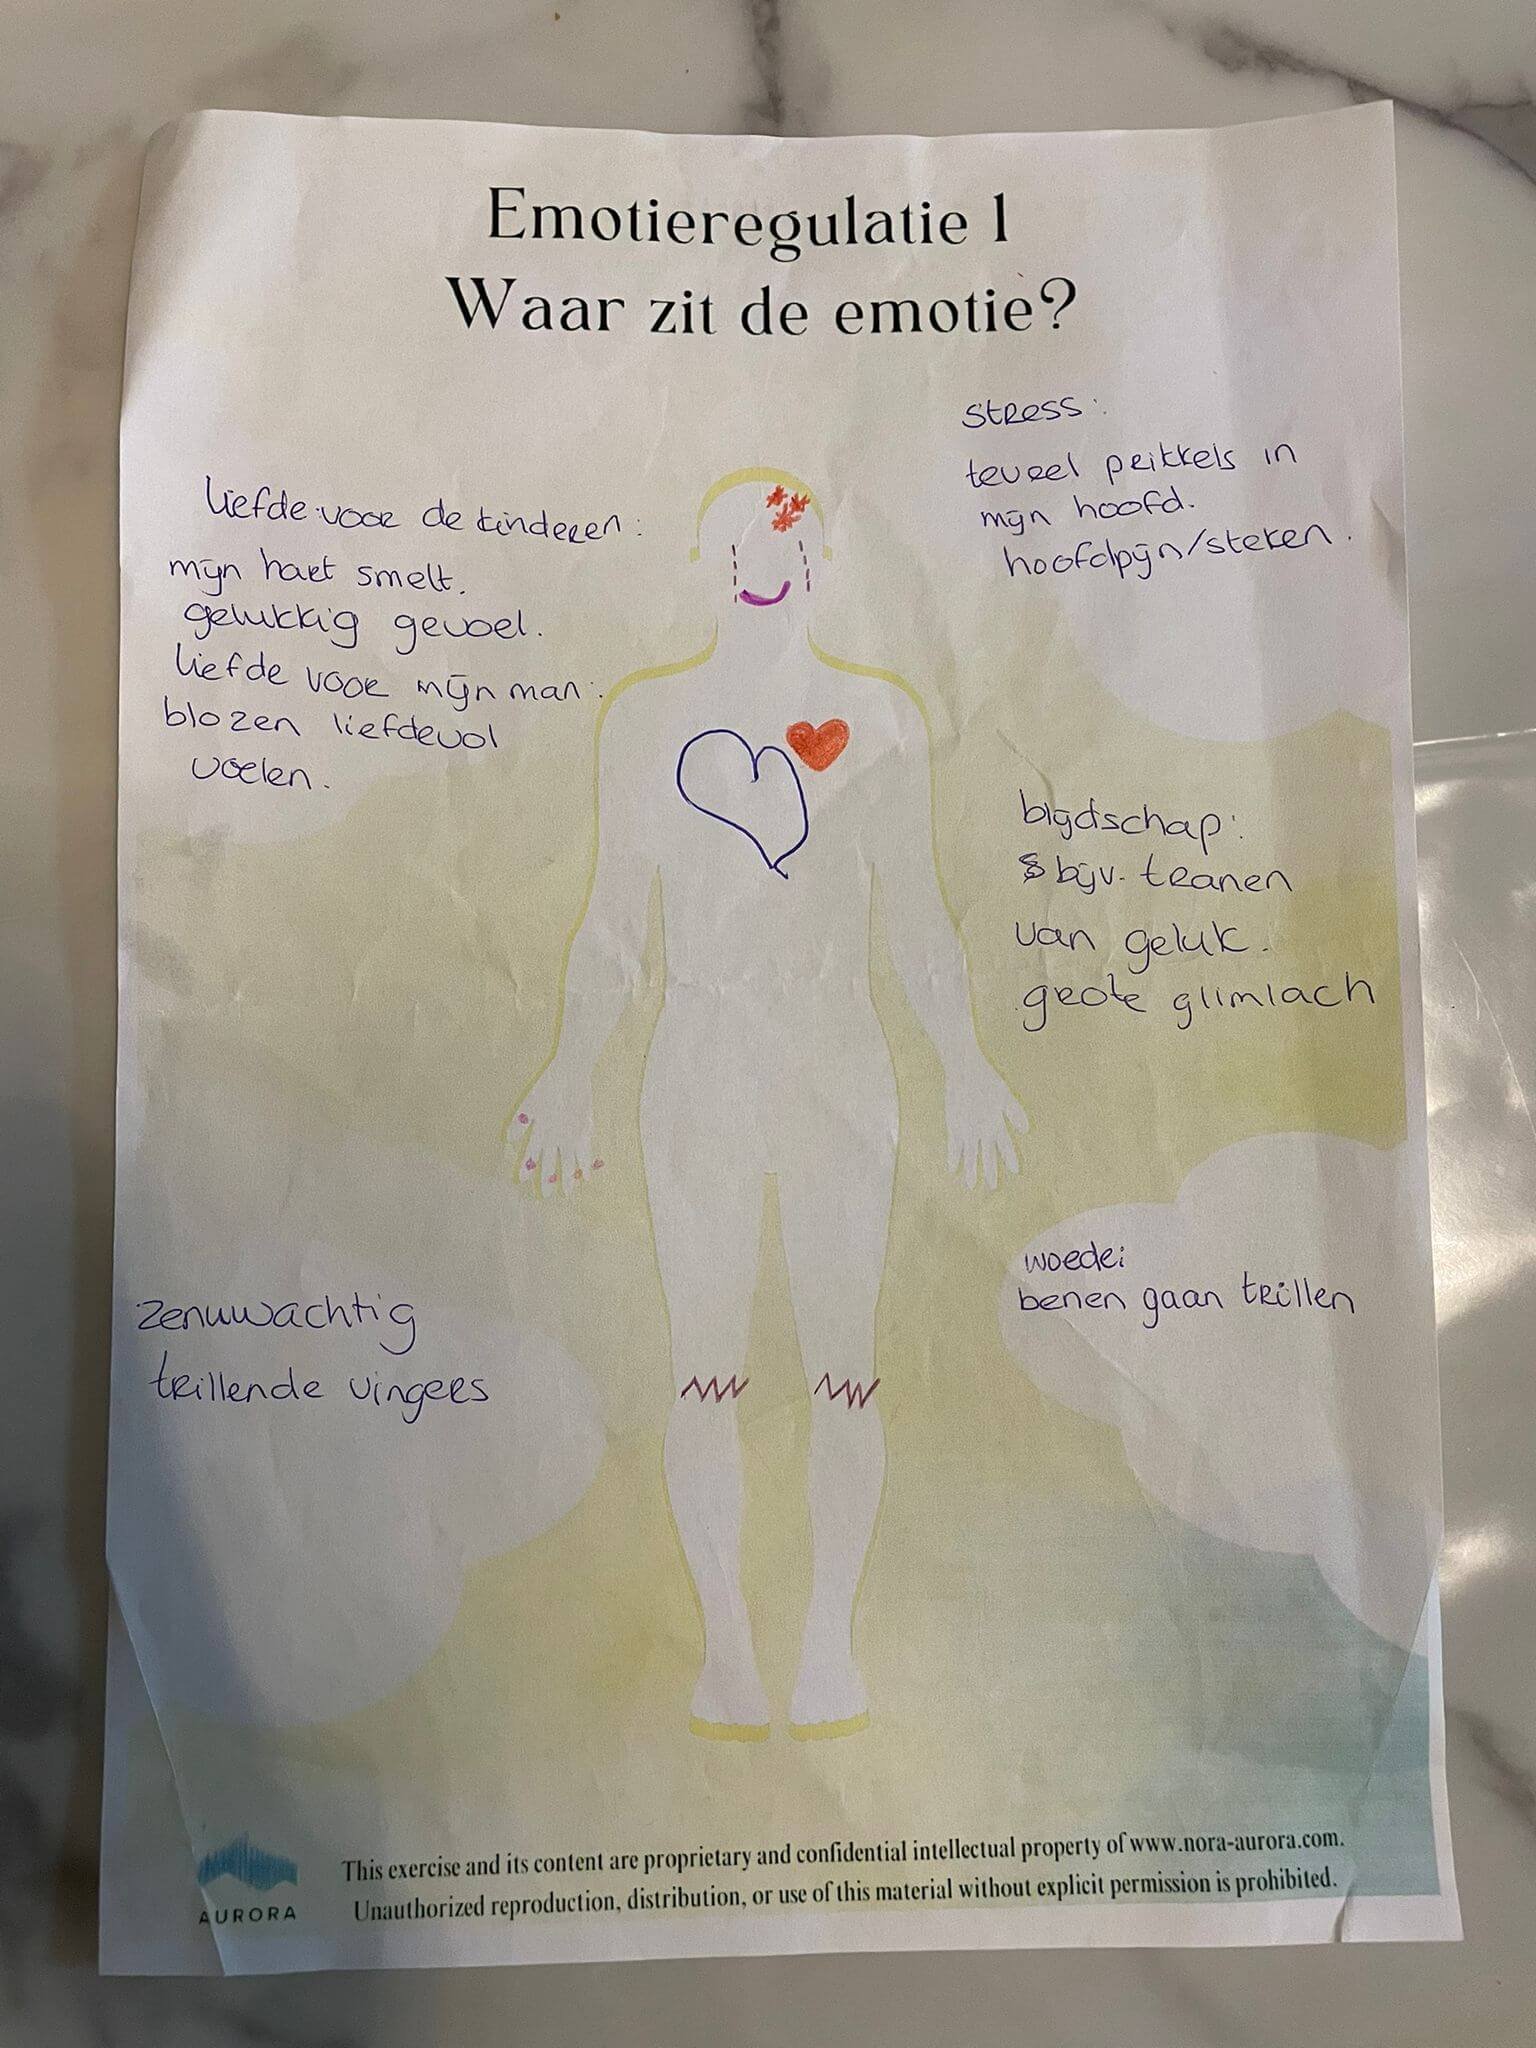 Emotieregulatie 1
Waar zit de emotie?
stress:
teveel prikkels in
mijn hoofd.
hoofdpijn/steken.
liefde voor de kinderen:
mijn hart smelt.
gelukkig gevoel.
liefde voor mijn man:
blozen liefdevol
voelen.
blijdschap:
bijv. tranen
van geluk.
grote glimlach
woede:
benen gaan trillen
zenuwachtig
trillende vingers
AURORA
This exercise and its content are proprietary and confidential intellectual property of www.nora-aurora.com.
Unauthorized reproduction, distribution, or use of this material without explicit permission is prohibited.